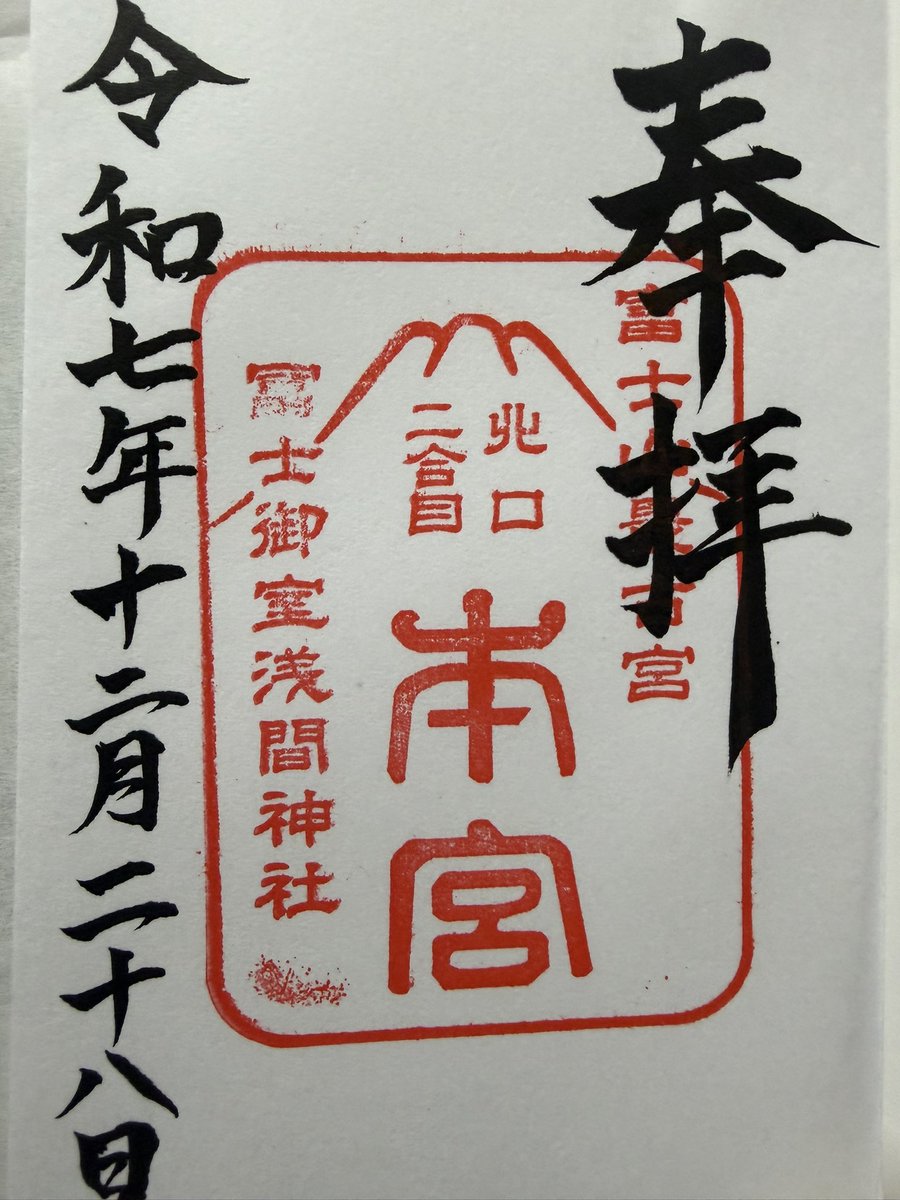 奉拝
富士山最古宮
北口
二合目
本宮
冨士御室浅間神社
令和七年十二月二十八日